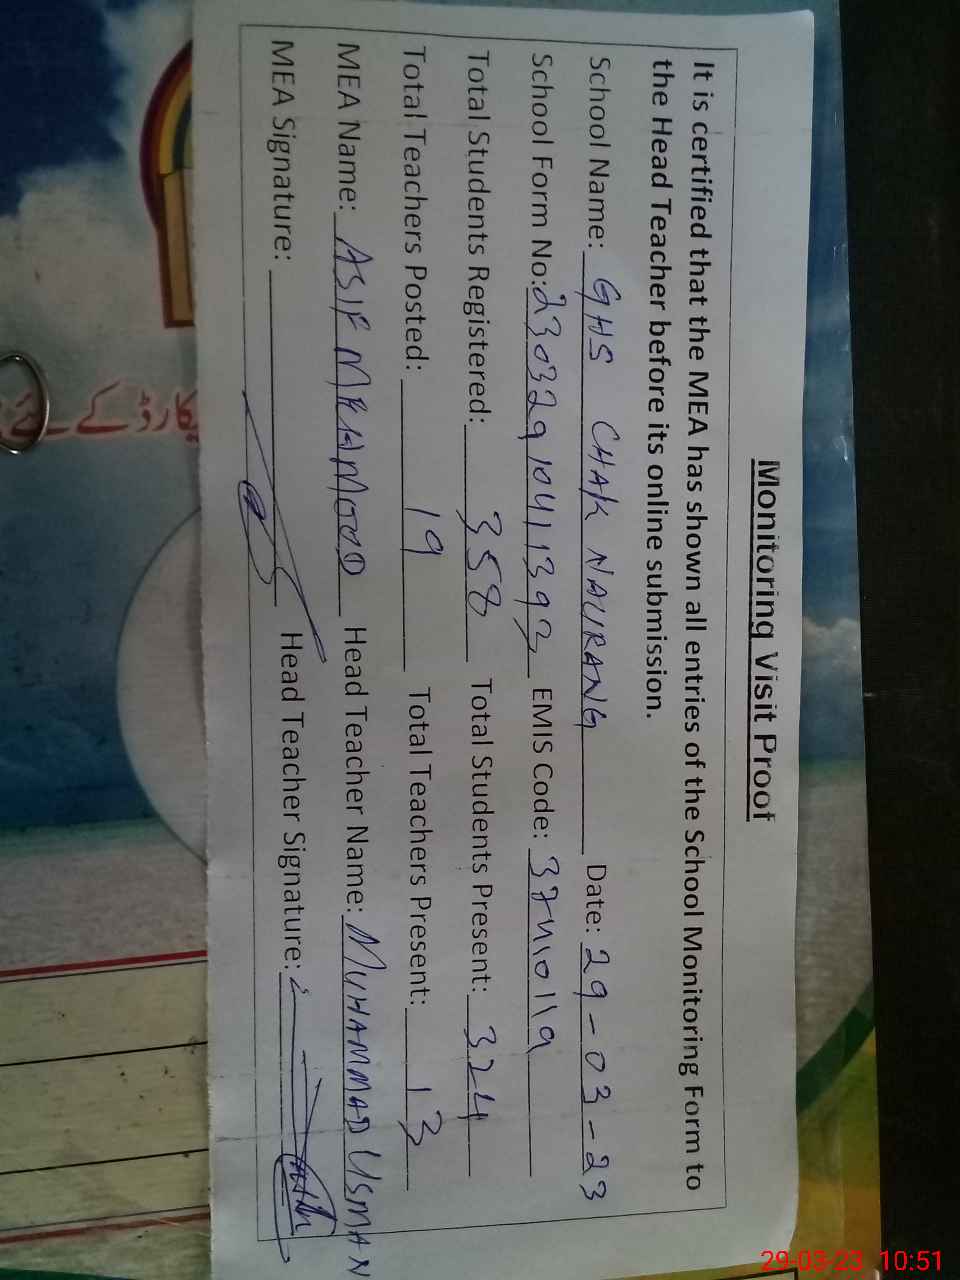 Monitoring Visit Proof
It is certified that the MEA has shown all entries of the School Monitoring Form to
the Head Teacher before its online submission.
School Name: GHS CHAK NAURANG Date: 29-03-23
School Form No: 23032910411393 EMIS Code: 37410119
Total Students Registered: 358 Total Students Present: 324
Total Teachers Posted: 19 Total Teachers Present: 13
MEA Name: ASIF MEHMOOD Head Teacher Name: MUHAMMAD USMAN
MEA Signature: Head Teacher Signature:
کارڈ کے لئے
29-03-23 10:51